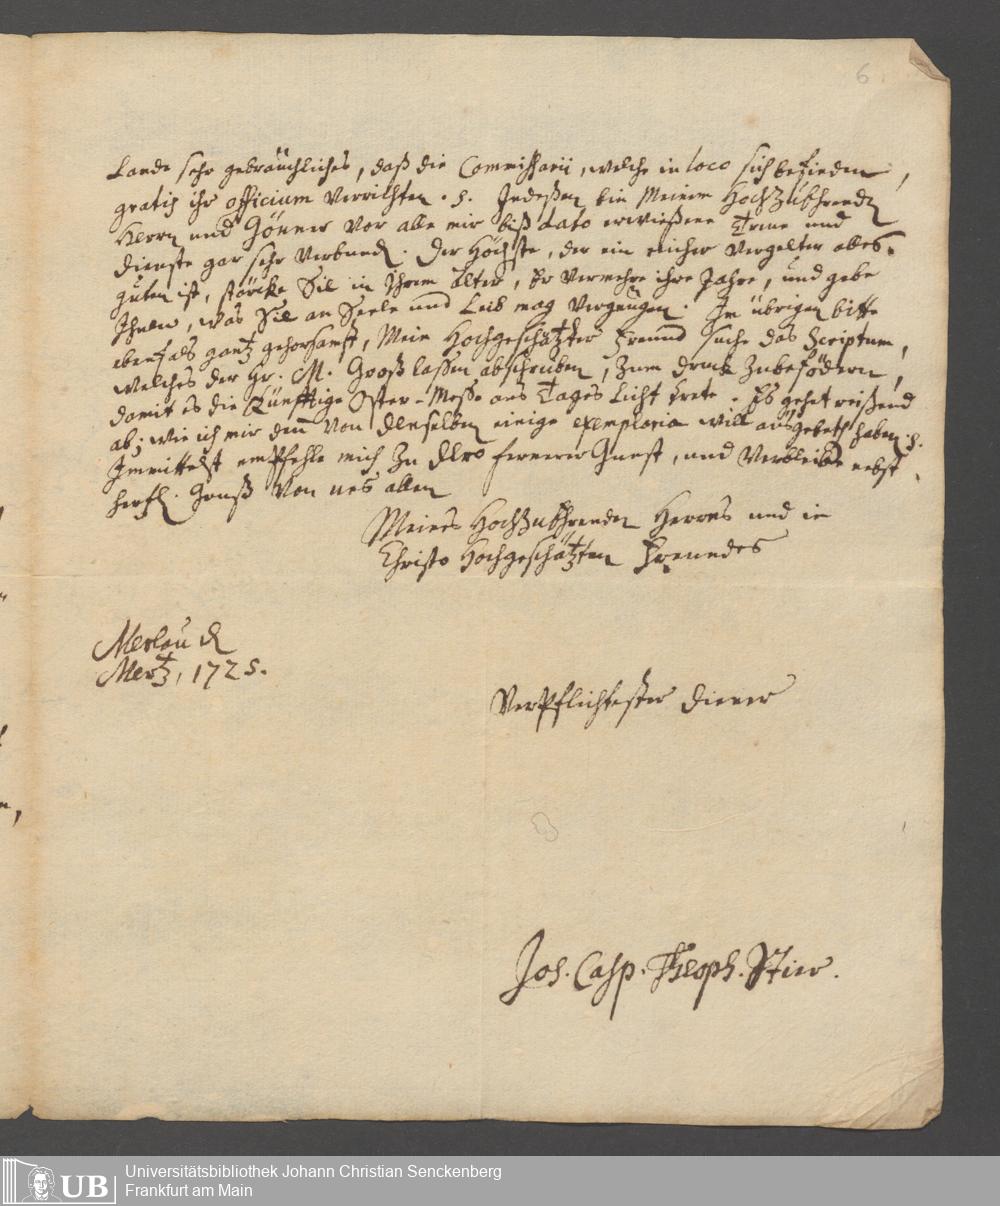 6
Lande sehr gebräuchliches, daß die Commissarii, welche in loco sich befinden,
gratis ihr officium verrichten. Indeßen bin Meinem HochzuEhrenden
Herrn und Gönner vor alle mir biß dato erwießene Treue und
Dienste gar sehr verbunden. Der Höchste, der ein reicher Vergelter alles
guten ist, stärcke Sie in Ihrem Alter, Er vermehre ihre Jahre, und gebe
Ihnen, was Sie an Seele und Leib mag vergnügen. Im übrigen bitte
ebenfals gantz gehorsamst, Mein Hochgeschätzter Freund suche das Scriptum,
welches der Hr. M. Grooß lassen abschreiben, zum druck zubefödern,
damit es die Künfftige Oster-Messe ans Tages Licht trete. Es gehet reißend
ab; wie ich mir den von denselben einige exemplaria will ausgebeth haben.
Immittelst empfehle mich zu dero fernerer Gunst, und verbleibe nebst
hertzl. Gruß von uns allen
Meines HochzuEhrenden Herrns und in
Christo Hochgeschätzten Freundes
Merlau d
Mertz, 1725.
Verpflichtester Diener
Joh. Casp. Theoph. Stier.
UB
Universitätsbibliothek Johann Christian Senckenberg
Frankfurt am Main